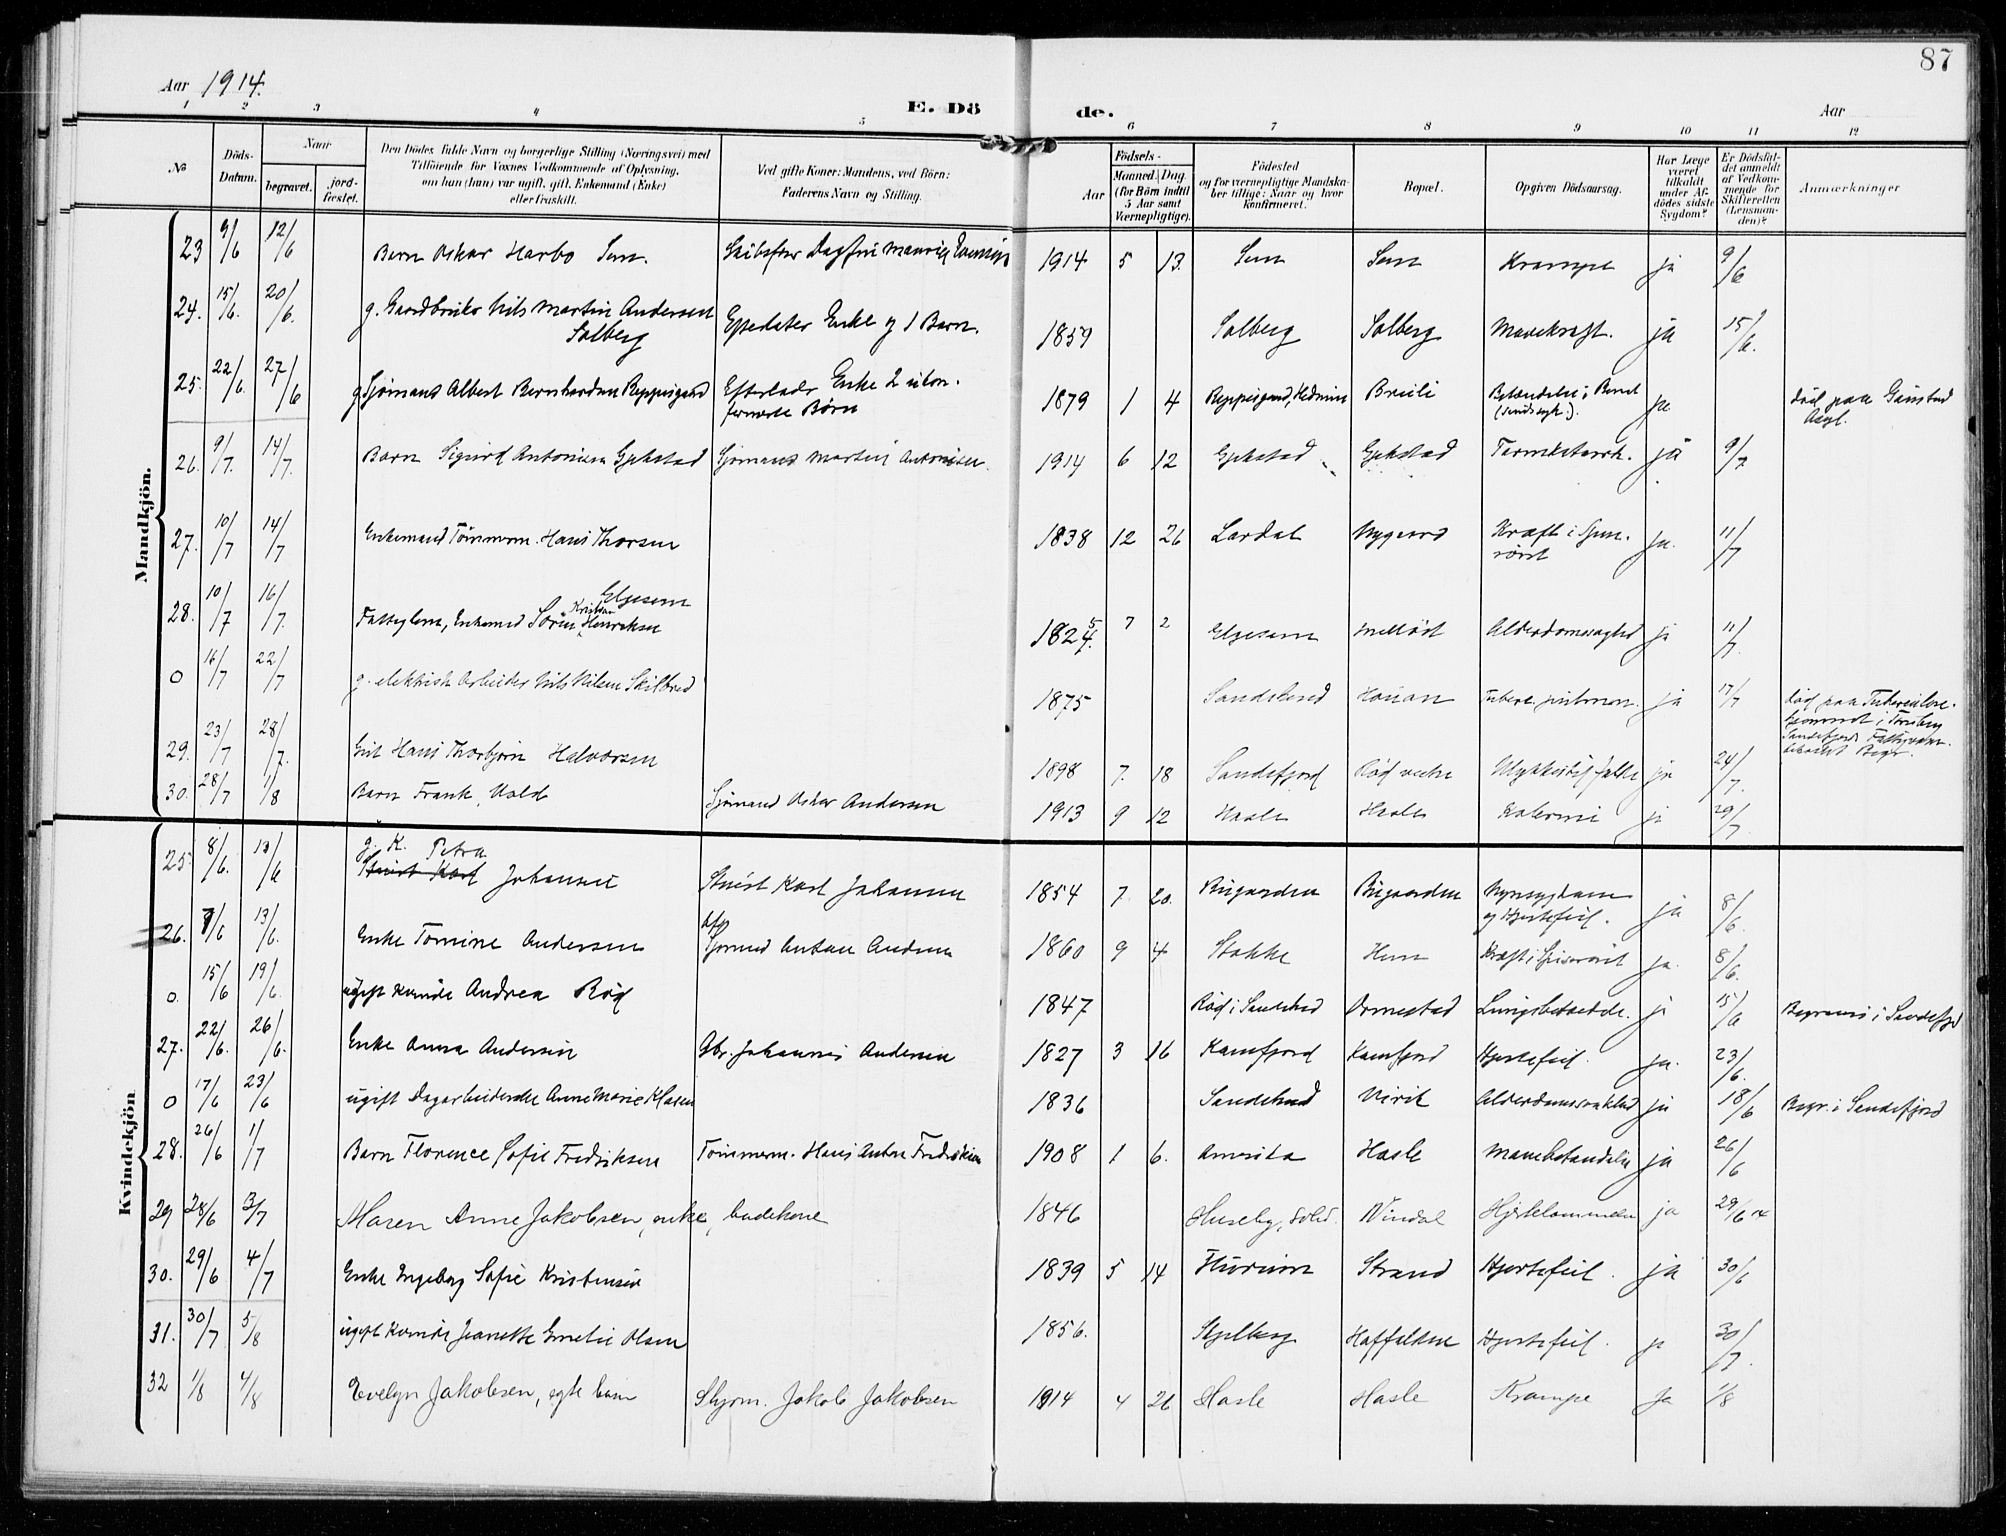 87
Aar 1914.
E. Dö de.
Aar
1 2 3 4 5 6 7 8 9 10 11 12
No
Döds-Datum.
Naar
begravet. jord-fæstet.
Den Dödes fulde Navn og borgerlige Stilling (Næringsvei) med
Tilföiende for Voxnes Vedkommende af Oplysning,
om han (hun) var ugift, gift, Enkemand (Enke)
eller fraskilt.
Ved gifte Koner: Mandens, ved Börn:
Faderens Navn og Stilling.
Födsels-
Aar Maaned. Dag.
(for Börn indtil
5 Aar samt
Værnepligtige).
Födested
og for værnepligtige Mandska-
ber tillige: Naar og hvor
konfirmeret.
Bopæl.
Opgiven Dödsaarsag.
Har Læge
været
tilkaldt
under Af-
dödes sidste
Sygdom?
Er Dödsfal-
det anmeldt
af Vedkom-
mende for
Skifteretten
(Lensman-
den)?
Anmærkninger
Mandkjön.
23 9/6 12/6 Barn Oskar Harbo Sem. 1914 5 13. Sem Sem Krampe ja 9/6
24. 15/6. 20/6. g. Gaardbruker Nils Martin Andersen
Solberg Efterlater Enke og 1 Barn. 1859 Solberg Solberg Mavekræft. ja 15/6.
25. 22/6. 27/6 g Sjømand Albert Bernhardsen Reppesgaard Efterlader Enke 2 uden.
Børn 1879 1 4 Breili Betændelse i ja død paa Gaustad
Asyl.
26. 9/7. 14/7. Barn Sigurd Antonisen Gjekstad Sjømand Martin Antonisen. 1914 6 12 Gjekstad Gjekstad Tarmkatarrh. ja 9/7
27. 10/7 14/7 Enkemand Tømmerm. Hans Thorsen 1838 12 26 Lardal Nygaard Kræft i ja. 11/7
28. 10/7 16/7. Elgesem
Kristian
Enkemd Søren Henriksen 1824 5 7 2 Elgesem Alderdomssvaghed ja 11/7.
0 16/7 22/7 g. elektrisk Arbeider Nils Nilsen Skilbred 1875 Sandeherred ja 17/7 død paa Tuberculose-
i Tønsberg
Sandefjords
Begr.
29. 23/7 28/7. Gut Hans Thorbjørn Halvorsen 1898 7. 18 Sandefjord ja 24/7.
30. 28/7 1/8 Barn Frank Vold Sjømand Oskar Andersen 1913 9 12 Hasle Hasle ja 29/7
Kvindekjön
25 8/6. 13/6 g. K. Petra
Karl Johansen Karl Johansen 1854 7. 20. Bugaarden Bugaarden Nyresygdom
og Hjertefeil. ja 8/6.
26. 7/6 13/6. Enke Tomine Andersen Afd
Sjømand Anton Andersen 1860 9 4 Stokke Hem Kræft i Spiserøret ja. 8/6.
0. 15/6 19/6. ugift Kvinde Andrea Rød 1847 Rød i Sandeherred Ormestad Lungebetændelse. ja 15/6 Begraves i Sandefjord
27. 22/6. 26/6. Enke Anna Andersen Gbr. Johannes Andersen 1827 3 16 Kamfjord Kamfjord Hjertefeil. ja. 23/6.
0 17/6 23/6 ugift Dagarbeiderske Anne Marie Klasen 1836 Sandeherred Virik Alderdomssvakhed ja 18/6 Begr. i Sandefjord
28. 26/6 1/7 Barn Florence Sofie Fredriksen Tømmerm. Hans Anton Fredriksen 1908 1 6. Amerika Hasle Mavebetændelse ja 26/6
29 28/6 3/7 Maren Anne Jakobsen, enke, badekone 1846 Huseby, Vindal Hjertelammelse ja 29/6 14
30. 29/6 4/7 Enke Ingeborg Sofie Kristensen 1839 5 14 Strand Hjertefeil. ja 30/6
31. 30/7 5/8 ugift Kvinde Jeanette Emelie Olsen 1856. Hjertefeil. ja 30/7.
32 1/8 4/8 Evelyn Jakobsen, egte barn Styrm. Jakob Jakobsen 1914 4 26 Hasle Hasle Krampe ja 1/8